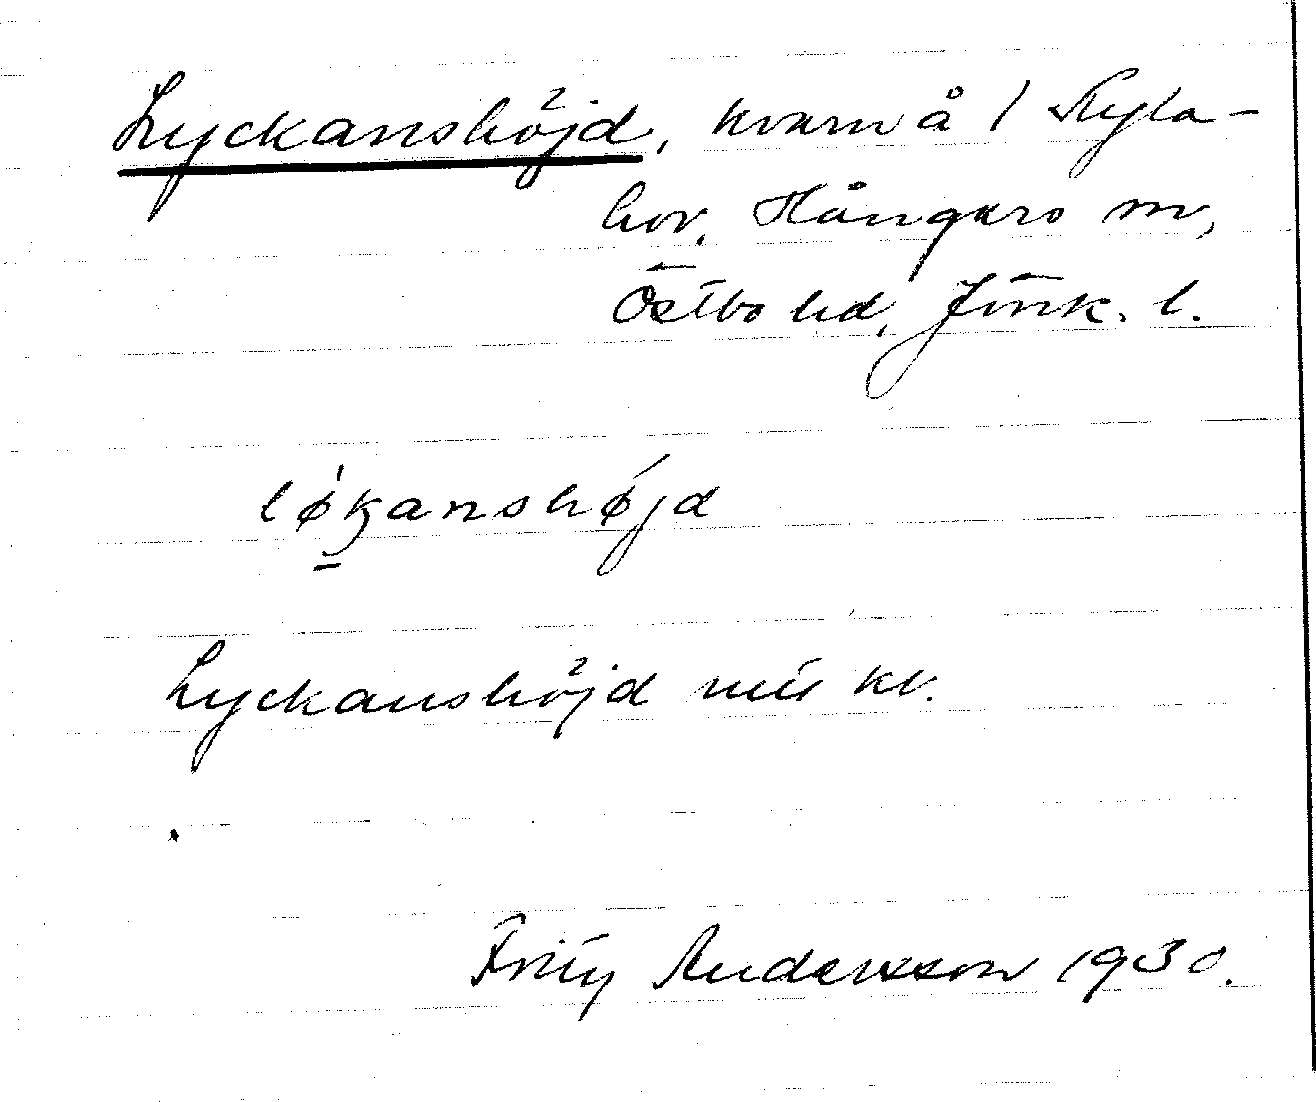 Lyckanshöjd, kvarn å 1 Nyla-
hov, Hångers sn,
Östbo hd, Jönk. l.
løkanshøjd
Lyckanshöjd nu kv.
Fritz Andersson 1930.